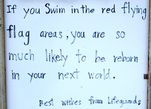 If you Swim in the red flying
flag areas, you are so
much likely to be reborn
in your next world.
Best wishes from Lifeguards